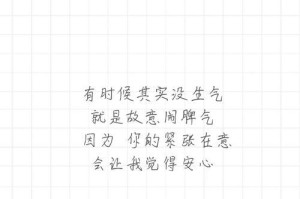 有时候其实没生气
就是故意闹脾气
因为 你的紧张在意
会让我觉得安心